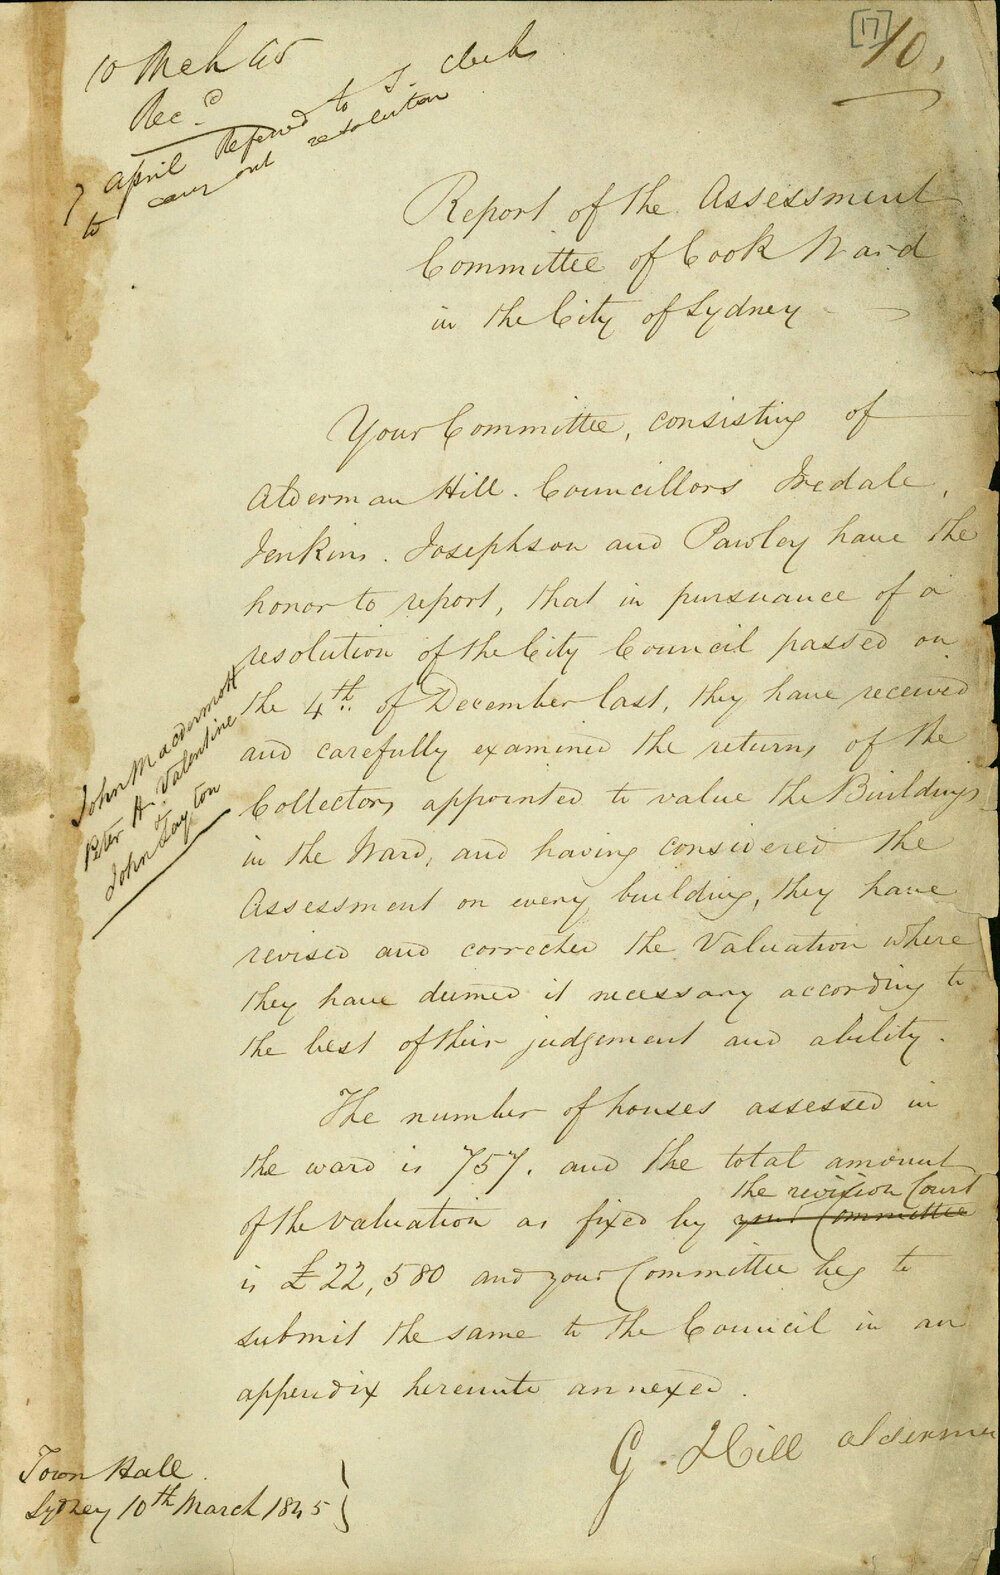 [17]
10,
10 Mch 45
Rec.d
7 April Referred to T. Clerk
to carry out resolution
Report of the Assessment
Committee of Cook Ward
in the City of Sydney
Your Committee, consisting of
Alderman Hill. Councillors Iredale,
Jenkins. Josephson and Pawley have the
honor to report, that in pursuance of a
resolution of the City Council passed on
the 4th of December last, they have received
and carefully examined the returns of the
Collectors appointed to value the Buildings
in the Ward, and having considered the
Assessment on every building, they have
revised and corrected the Valuation where
they have deemed it necessary according to
the best of their judgement and ability.
John Macdermott
Peter H. Valentine
&
John Layton
The number of houses assessed in
the ward is 757. and the total amount
the revision Court
of the valuation as fixed by your Committee
is £22,580 and your Committee beg to
submit the same to the Council in an
appendix hereunto annexed.
G. Hill Alderman
Town Hall
Sydney 10th March 1845